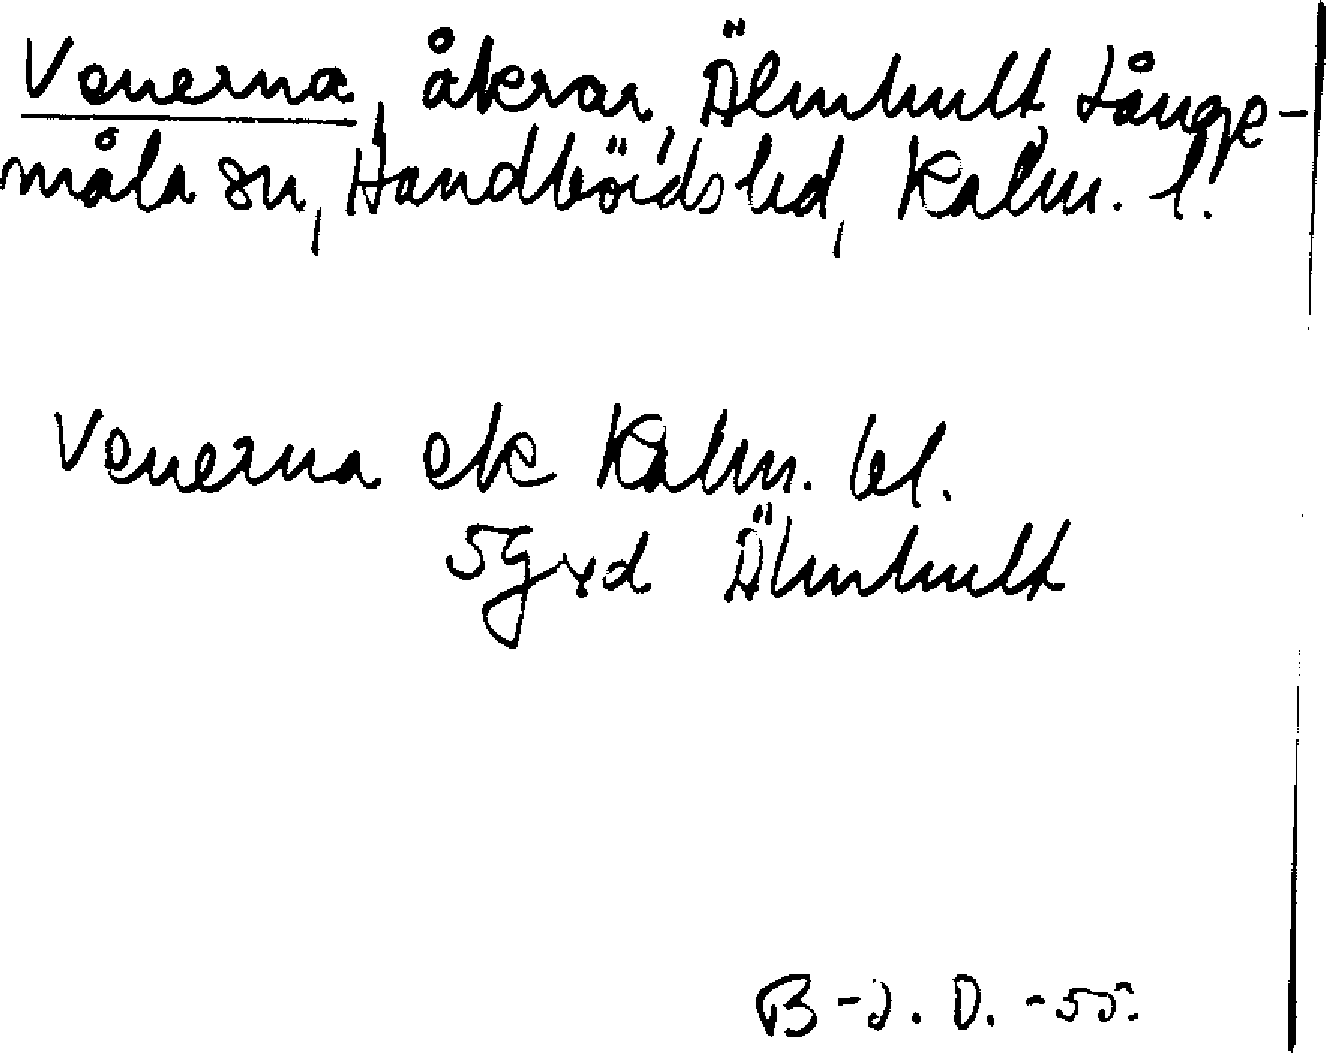 Venerna, åkrar, Älmhult, Långe-
måla sn, Handbörds hd, Kalm. l.
Venerna ek Kalm. bl.
5 g rd Älmhult
B-J. D. -55.